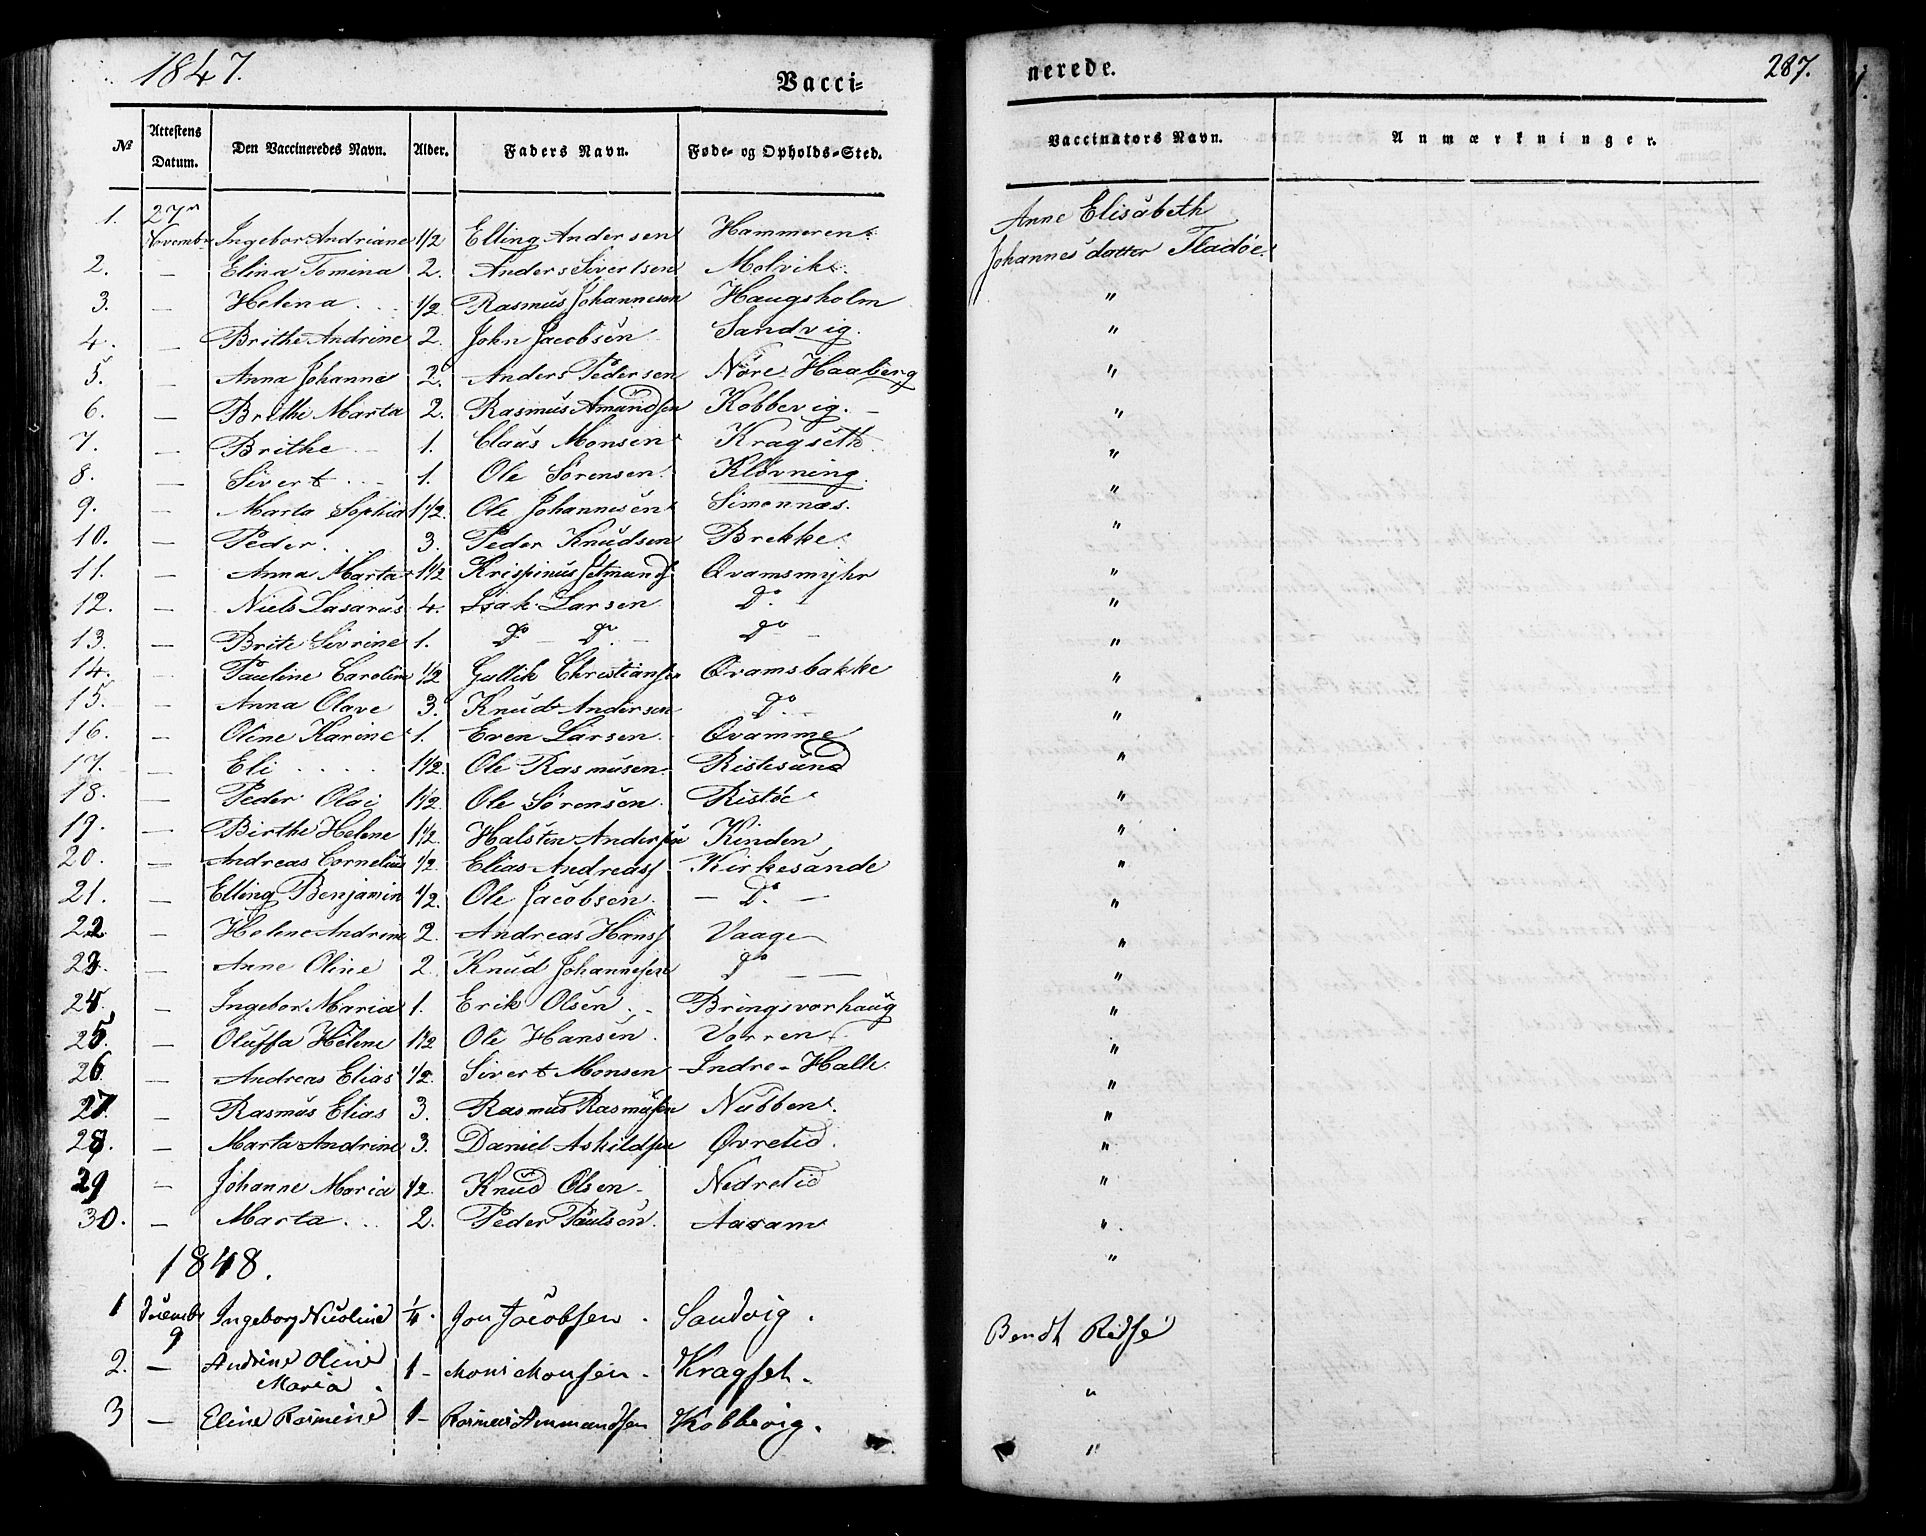 1847.
Vacci=
nerede.
287.
№ Attestens Datum. Den Vaccineredes Navn. Alder. Faders Navn. Føde- og Opholds-Sted. Vaccinators Navn. Anmærkninger.
1. 27de Novembr Ingebor Andriane 1/2 Elling Andersen Hammeren Anne Elisabeth
2. — Elina Tomina 2. Anders Sivertsen Molvik. Johannesdatter Fladøe.
3. — Helena . . . 1/2 Rasmus Johannesen Haugsholm "
4. — Brithe Andrine 2. John Jacobsen Sandvig. "
5. — Anna Johanne 2. Anders Pedersen Nöre Haaberg "
6. — Brithe Marta 2. Rasmus Amundsen Kobbevig. — "
7. — Brithe . . . 1. Claus Monsen Kragseth "
8. — Sivert . . . 1. Ole Sørensen. Kløvning. "
9. — Marta Sophia 1 1/2. Ole Johannesen Simonnæs. "
10. — Peder. . . 3. Peder Knudsen Brekke. "
11. — Anna Marta 1 1/2 Krispinus Jetmunds Qvamsmyhr "
12. — Niels Lasarus 4. Isak Larsen Do. "
13. — Brite Sivrine 1. Do — Do — Do — "
14. — Pauline Caroline 1/2 Gullik Christiansen Qvamsbakke "
15. — Anna Olave 3. Knud Andersen Do. "
16. — Oline Karine 1. Even Larsen. Qvamme "
17. — Eli . . . . 1 1/2. Ole Rasmusen. Ristesund "
18. — Peder Olai 1 1/2. Ole Sørensen. Ristöe "
19. — Birthe Helene 1 1/2. Halsten Andersen Kinden "
20. — Andreas Cornelius 1/2 Elias Andreass Kirkesunde "
21. — Elling Benjamin 1/2. Ole Jacobsen. — Do. — "
22. — Helene Andrine 2. Andreas Hanss Vaage "
23. — Anne Oline 2. Knud Johannesen Do — — "
24. — Ingebor Maria 1. Erik Olsen . . Bringsvorhaug "
25. — Oluffa Helene 1 1/2 Ole Hansen. Vorren. "
26. — Andreas Elias 1/2. Sivert Monsen Indre-Halle "
27. — Rasmus Elias 3. Rasmus Rasmusen Nubben. "
28. — Marta Andrine 3. Daniel Askildsen Øvrelid. "
29 — Johanne Maria 1/2. Knud Olsen — Nedrelid "
30. — Marta. . . 2. Peder Paulsen. Aaram "
1848. "
1 Decembr 9 Ingeborg Nicoline 1/4. Jon Jacobsen . Sandvig . Bendt Ridsé
2. — Andrine Oline Maria . 1 - Mons Monsen - Kragset. "
3 — Eline Rasmine 1 - Rasmus Ammandsen Kobbevig. "